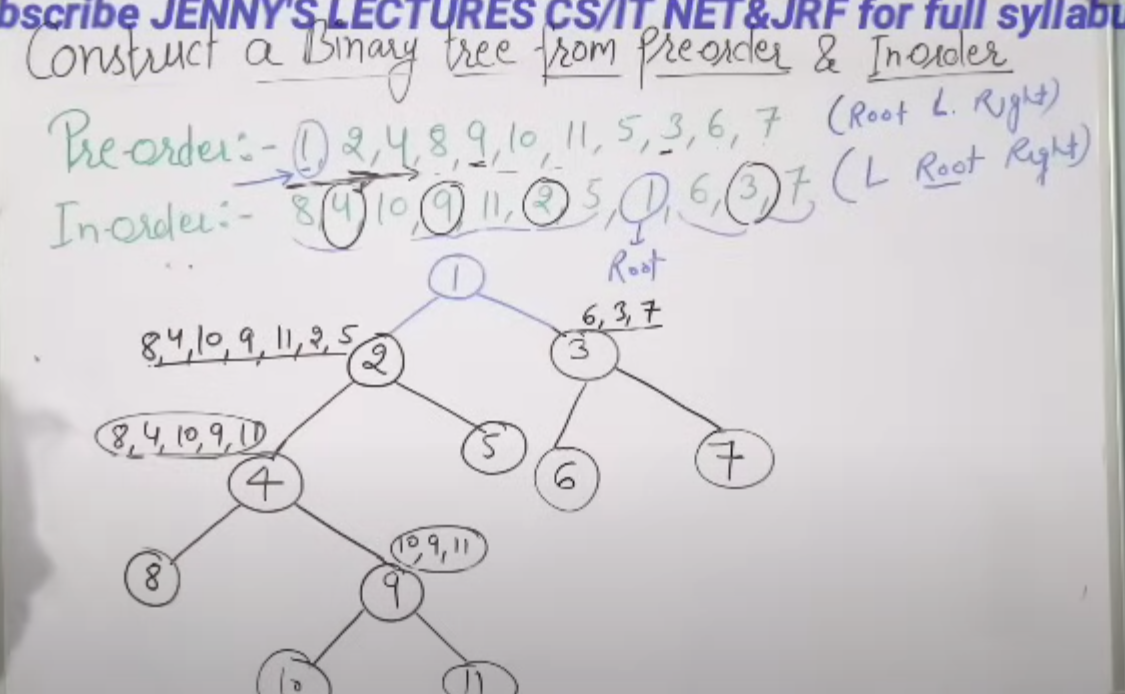 bscribe JENNY'S LECTURES CS/IT NET&JRF for full syllabu
Construct a Binary tree from Preorder & Inorder
Pre-order:- 1, 2, 4, 8, 9, 10, 11, 5, 3, 6, 7 (Root L. Right)
In-order:- 8, 4, 10, 9, 11, 2, 5, 1, 6, 3, 7 (L Root Right)
Root
1
8, 4, 10, 9, 11, 2, 5
6, 3, 7
2
3
8, 4, 10, 9, 11
5
4
6
7
10, 9, 11
8
9
10
11